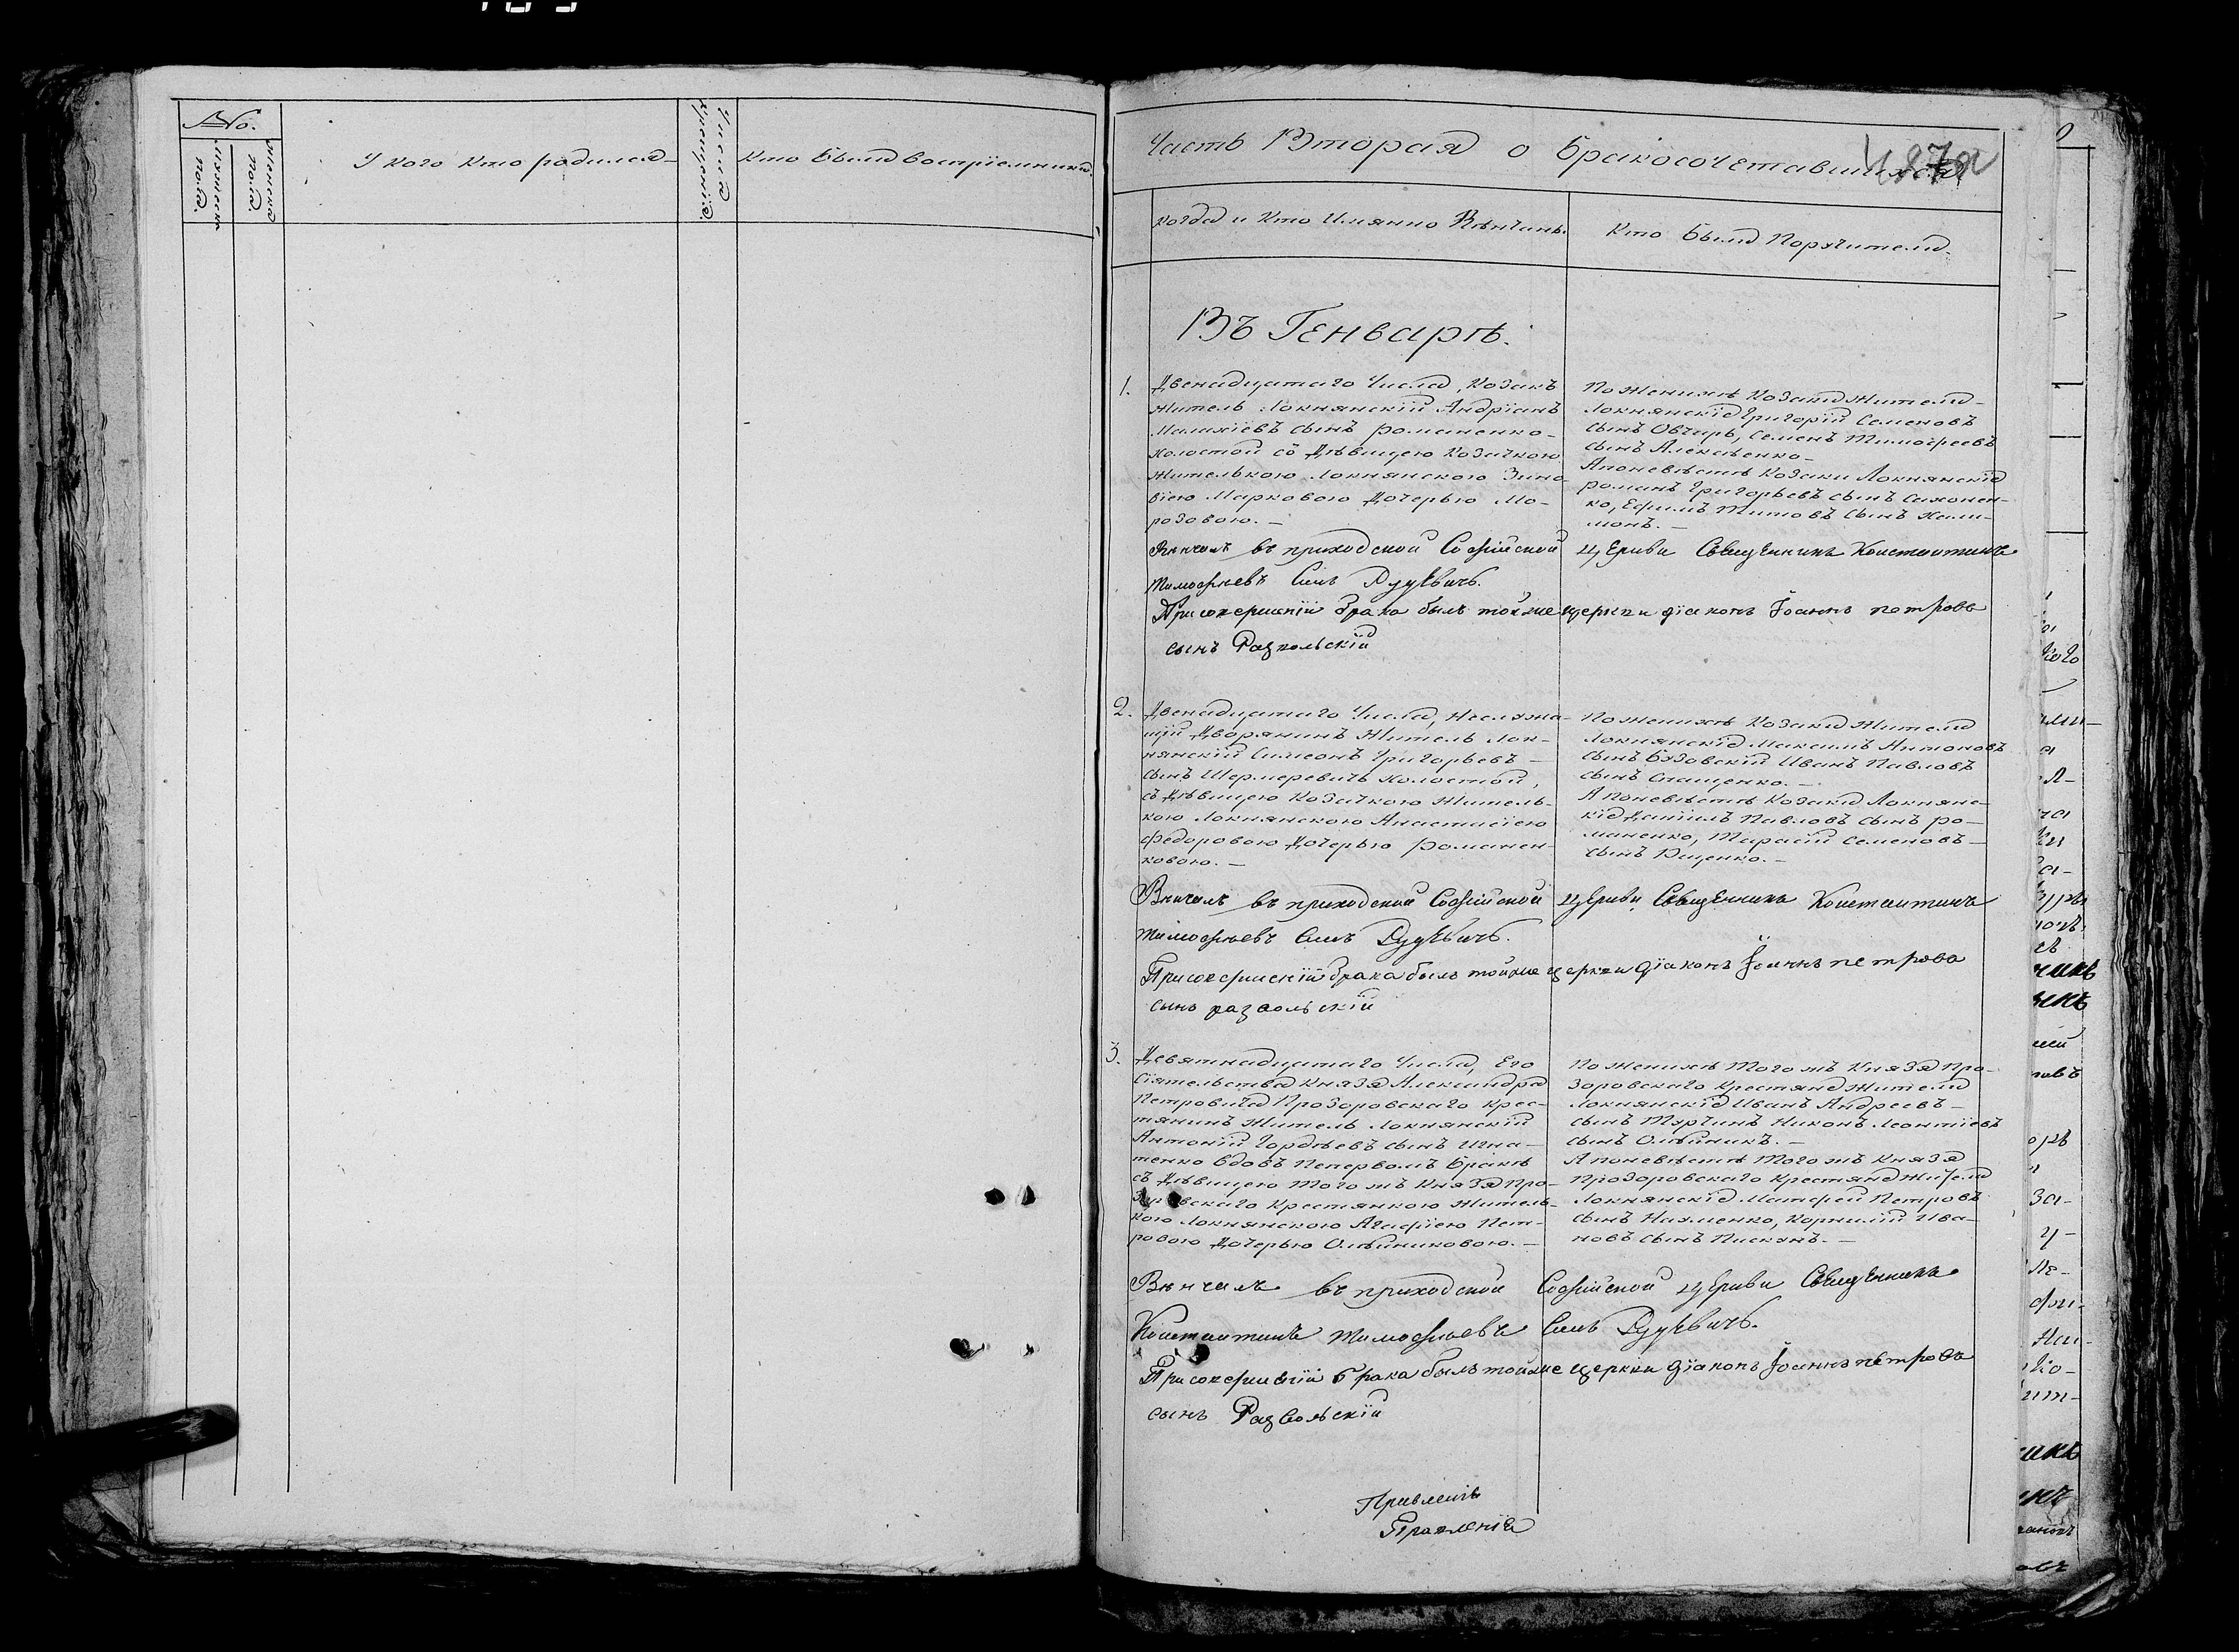 №.
Мужеска пола.
Женска пола.
У кого кто родился
Числа крещенія.
Кто были воспріемники.
Часть Вторая о бракосочетавшихся
487
Когда и Кто Имянно Вѣнчанъ.
Кто были Поручители.
Въ Генварѣ.
1.
Двенадцатаго Числа, Козакъ
Житель Локнянскій Андріанъ
Малахіевъ сынъ романенко
холостой съ Дѣвицею Козачкою
Жителькою Локнянскою Зино-
віею Марковою Дочерью Мо-
розовою. —
По Женихѣ Козаки Жители
Локнянскіе Григорій Семеновъ
сынъ Овчаръ, Семенъ Тимофеевъ
сынъ Алексѣенко
Апоневѣстѣ Козаки Локнянскіе
романъ Григорьевъ сынъ Сахонен-
ко, Ефимъ Титовъ сынъ Хали-
монъ. —
Вѣнчалъ въ приходской Софійской церкви Священникъ Константинъ
Тимофѣевъ Сынъ
При совершеніи брака былъ тойже церкви діаконъ Іоаннъ петровъ
сынъ Развольскій
2.
Двенадцатаго Числа, неслужа-
щій Дворянинъ Житель Лок-
нянскій Симеонъ Григорьевъ —
сынъ Шермеревичъ холостой,
съ Дѣвицею Козачкою Житель-
кою Локнянскою Анастасіею
Федоровою Дочерью романен-
ковою. —
По женихѣ Козаки Жители
Локнянскіе Максимъ Антоновъ
сынъ Бузовскій Иванъ Павловъ
сынъ Спащенко. —
Апоневѣстѣ Козаки Локнянс-
кіе Даніилъ Павловъ сынъ ро-
маненко, Тарасій Семеновъ —
сынъ Яценко. —
Вѣнчалъ въ приходской Софійской церкви Священникъ Константинъ
Тимофѣевъ Сынъ
При совершеніи брака былъ тойже церкви діаконъ Іоаннъ петровъ
сынъ развольскій
3.
Девятнадцатаго Числа, Его
Сіятельства Князя Александра
Петровича Прозоровскаго крес-
тянинъ Житель Локнянскій
Антоній Гордѣевъ сынъ Игна-
тенко вдовъ Поперволъ бракѣ
съ Дѣвицею Того жъ Князя Про-
зоровскаго Крестянкою Житель-
кою Локнянскою Агафіею Пет-
ровою Дочерью Олѣйниковою. —
По женихѣ Того жъ Князя Про-
зоровскаго Крестяне Жители
Локнянскіе Иванъ Андреевъ —
сынъ Турчинъ Никонъ Леонтіевъ
сынъ Олѣйникъ. —
Апоневѣстѣ Того жъ Князя
Прозоровскаго Крестяне Жители
Локнянскіе Матфей Петровъ
сынъ Науменко, Корнилій Ива-
новъ сынъ Пискунъ. —
Вѣнчалъ въ приходской Софійской церкви Священникъ
Константинъ Тимофѣевъ Сынъ
При совершеніи брака былъ тойже церкви діаконъ Іоаннъ петровъ
сынъ Развольскій
Правленія